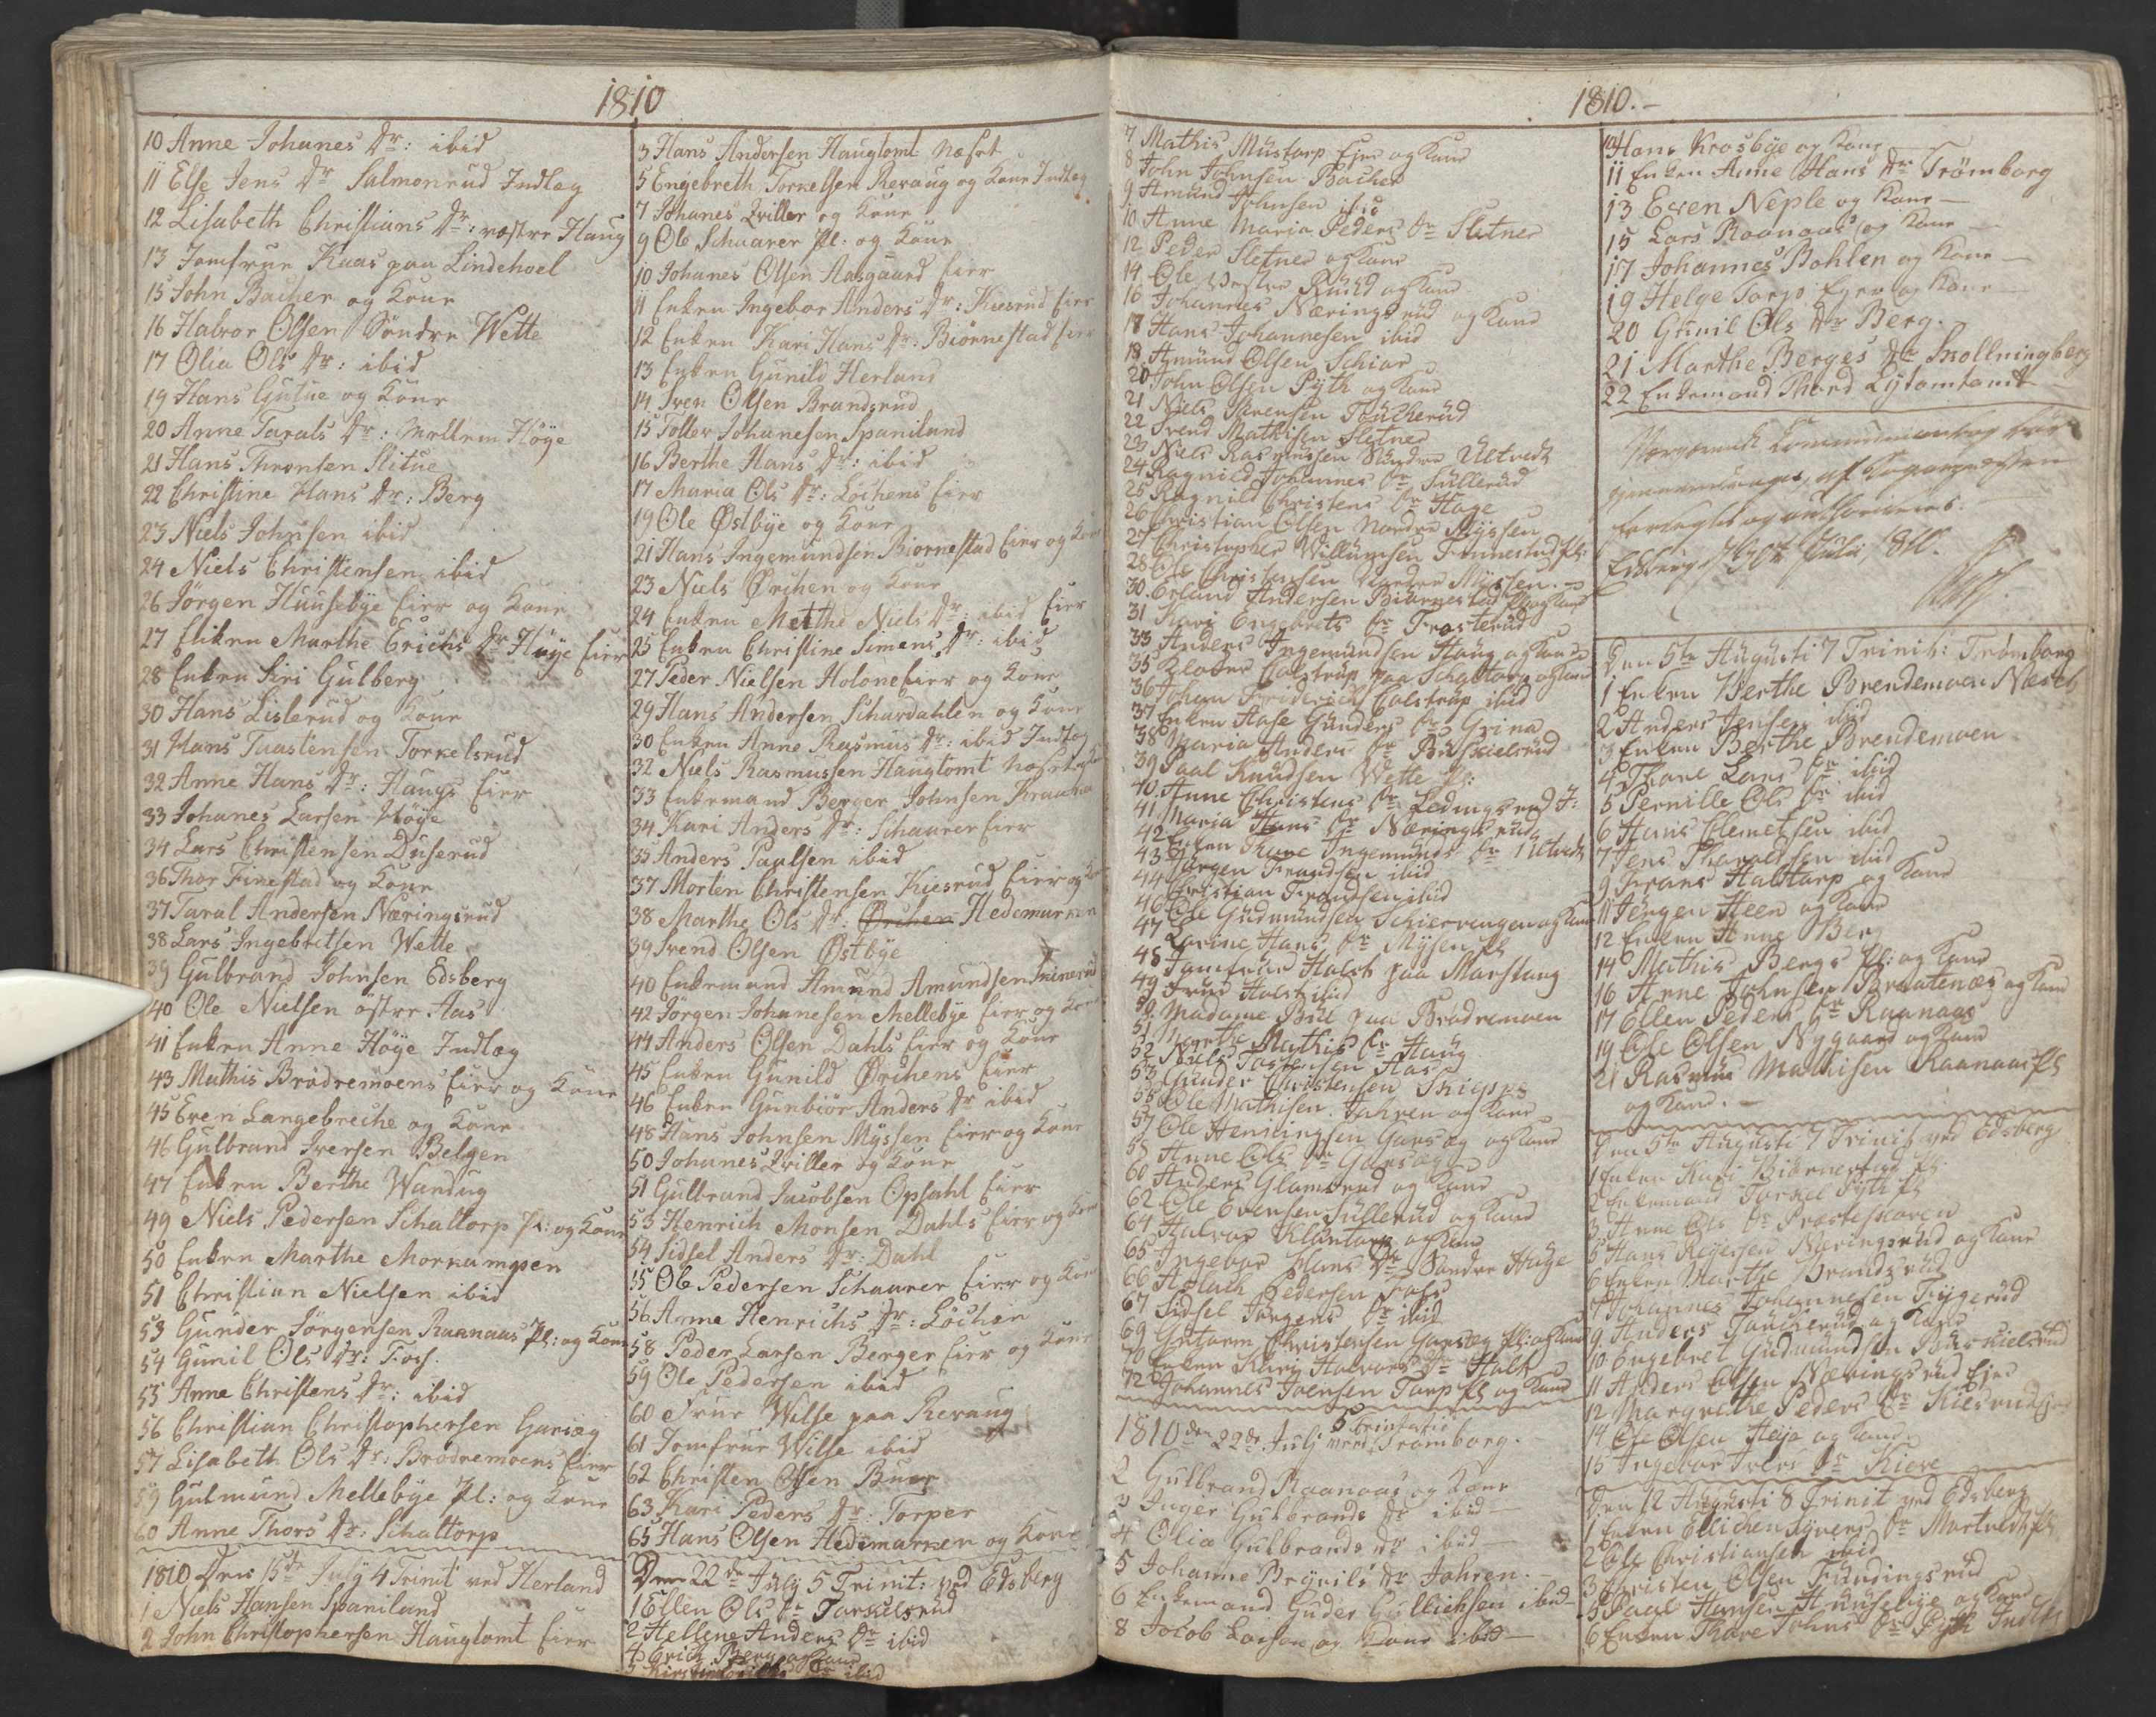 1810
10 Anne Johanes Dr: ibid
11 Else Jens Dr Salmonrud Indlæg
12 Lisabeth Christians Dr: væstre Haug
13 Jomfrue Kaas paa Lindehoel
15 John Bacher og Kone
16 Halvor Olsen Söndre Wette
17 Olia Ols Dr: ibid
19 Hans Gutue og Kone
20 Anne Tarals Dr: Mellem Höye
21 Hans Thronsen Slitue
22 Christine Hans Dr: Berg
23 Niels Johnsen ibid
24 Niels Christensen ibid
26 Jörgen Huusebye Eier og Kone
27 Enken Marthe Erichs Dr Høye Eier
28 Enken Siri Gulberg
30 Hans Lislerud og Kone
31 Hans Taastensen Torkelsrud
32 Anne Hans Dr: Haugs Eier
33 Johanes Larsen Höye
34 Lars Christensen Duserud
36 Thor Finestad og Kone
37 Taral Andersen Næringsrud
38 Lars Ingebretsen Wette
39 Gulbrand Johnsen Edsberg
40 Ole Nielsen östre Aas
41 Enken Anne Höye Indlæg
43 Mathis Brödremoens Eier og Kone
45 Even Langebreche og Kone
46 Gulbrand Iversen Belgen
47 Enken Berthe Wandug
49 Niels Pedersen Schaltorp Pl: og Kone
50 Enken Marthe Morkampen
51 Christian Nielsen ibid
53 Gunder Jörgensen Raanaas Pl: og Kone
54 Gunil Ols Dr: Foss
55 Anne Christens Dr: ibid
56 Christian Christophersen Garseg
57 Lisabeth Ols Dr: Brödremoens Eier
59 Gulmund Mellebye Pl: og Kone
60 Anne Thors Dr: Schaltorp
1810 Den 15de July 4 Trinit ved Herland
1 Niels Hansen Spaniland
2 John Christophersen Haugtomt Eier
3 Hans Andersen Haugtomt Næst
5 Engebreth Torkelsen Revaug og Kone Indlæg
7 Johanes Qviller og Kone
9 Ole Schaarer Pl: og Kone
10 Johanes Olsen Aasgaard Eier
11 Enken Ingebor Anders Dr: Kiesrud Eier
12 Enken Kari Hans Dr: Biörnestad Eier
13 Enken Gunild Herland
14 Iver Olsen Brandsrud
15 Toller Johanesen Spaniland
16 Berthe Hans Dr: ibid
17 Maria Ols Dr: Löchens Eier
19 Ole Østbye og Kone
21 Hans Ingemundsen Biornestad Eier og Kone
23 Niels Ørchen og Kone
24 Enken Mette Niels Dr: ibid Eier
25 Enken Christine Simens Dr: ibid
27 Peder Nielsen Holone Eier og Kone
29 Hans Andersen Schardahlen og Kone
30 Enken Anne Rasmus Dr: ibid Indlæg
32 Niels Rasmussen Haugtomt Næst
33 Enkemand Berger Johnsen
34 Kari Anders Dr: Schaarer Eier
35 Anders Paulsen ibid
37 Morten Christensen Kiesrud Eier og
38 Marthe Ols Dr: Ørchen Hedemarken
39 Svend Olsen Østbye
40 Enkemand Amund Amundsen
42 Jörgen Johanesen Mellebye Eier og Kone
44 Anders Olsen Dahls Eier og Kone
45 Enken Gunild Ørchens Eier
46 Enken Gunbiör Anders Dr ibid
48 Hans Johnsen Myssen Eier og Kone
50 Johanes Qviller og Kone
51 Gulbrand Jacobsen Opsahl Eier
53 Henrich Monsen Dahls Eier og Kone
54 Sidsel Anders Dr: Dahl
55 Ole Pedersen Schaarer Eier og Kone
56 Anne Henrichs Dr: Löchen
58 Peder Larsen Berger Eier og Kone
59 Ole Pedersen ibid
60 Frue Wilse paa Revaug
61 Jomfrue Wilse ibid
62 Christen Olsen Buer
63 Kari Peders Dr: Torper
65 Hans Olsen Hedemarken og Kone
Den 22de July 5 Trinit: ved Edsberg
1 Ellen Ols Dr Torkelsrud
2 Hellene Anders Dr ibid
4 Erich Berg og Kone
Dr ibid
1810.-
7 Mathis Mustorp Ejer og Kone
8 John Johnsen Bacher
9 Amund Johnsen ibid
10 Anne Maria Peders Dr Sletner
12 Peder Sletner og Kone
14 Ole Vestre Ruud og Kone
16 Johannes Næringsrud og Kone
17 Hans Johannesen ibid
18 Amund Olsen Schiør
20 John Olsen Pyth og Kone
21 Niels Sørensen Toucherud
22 Svend Mathisen Sletner
23 Niels Rasmussen Nordre Ultvedt
24 Ragnild Johannes Dr Sullerud
25 Ragnild Christens Dr Hage
26 Christian Olsen Nordre Myssen
27 Christopher Willumsen Finnestad Pl:
28 Ole Christensen Nordre Myssen.
30 Erland Andersen Biørnestad Pl og Kone
31 Kari Engebrets Dr Frosterud
33 Anders Ingemundsen Haug og Kone
35 Colstrup paa Schaltorp og Kone
36 Johan Friderich Colstrup ibid
37 Enken Aase Gunders Dr Grina
38 Maria Anders Dr Buskielsrud
39 Paal Knudsen Wette Pl:
40 Anne Christens Dr Ledingsrud J:
41 Maria Hans Dr Næringsrud
42 Enken Thore Ingemunds Dr Ultvedt
43 Jørgen Frandsen ibid
44 Christian Frandsen ibid
46 Ole Gudmundsen Schiervengen og Kone
47 Larine Hans Dr Mysen Pl
48 Jomfrue Holst paa Morstang
49 Frue Holst ibid
50 Madame Bül paa Brødremoen
51 Marthe Mathis Dr Haug
52 Niels Tostensen Aas
53 Gunder Christensen Skiepps
55 Ole Mathisen Jahren og Kone
57 Ole Henningsen Garseg og Kone
58 Anne Ols Dr Garseg
60 Anders Glamsrud og Kone
62 Ole Evensen Sullerud og Kone
64 Halvor Kluntorp og Kone
65 Ingebor Hans Dr Søndre Høye
66 Aslach Pedersen Foss
67 Sidsel Jørgens Dr ibid
69 Gutorm Christensen Garseg Pl: og Kone
70 Enken Kari Halvors Dr Holt
72 Johannes Ivensen Torp Pl og Kone
5 Trinitatis
1810 den 22de Julj ved Tromborg.
2 Gulbrand Raanaas og Kone
3 Inger Gulbrands Dr ibid
4 Olia Gulbrands Dr ibid
5 Johanne Brynils Dr Jahren.
6 Enkemand Guder Gullichsen ibid
8 Jocob Larsen og Kone ibid
10 Hans Krosbye og Kone
11 Enken Anne Hans Dr Trømborg
13 Even Neple og Kone
15 Lars Raanaas og Kone
17 Johannes Bohlen og Kone
19 Helge Torp Ejer og Kone
20 Gunil Ols Dr Berg.
21 Marthe Berges Dr Skollningberg
22 Enkemand Thord Lystomtomt
Edsberg 30te Julii 1811.
Den 5te Augusti 7 Trinit: Trømborg
1 Enken Berthe Brendemoen Næst
2 Anders Jensen ibid
3 Enken Berthe Brendemoen
4 Thore Lars Dr ibid
5 Pernille Ols Dr ibid
6 Hans Clemetsen ibid
7 Jens Tharaldsen ibid
9 Frans Haltorp og Kone
11 Jørgen Heen og Kone
12 Enken Anne Berg
14 Mathis Bergs Pl: og Kone
16 Arne Johnsen Braatenæs og Kone
17 Ellen Peders Dr Raanaas
19 Ole Olsen Nygaard og Kone
21 Rasmus Mathisen Raanaas Pl
og Kone.
Den 5te Augusti 7 Trinit ved Edsberg
1 Enken Kari Biørnestad Pl
2 Enkemand Torkel Pyth Pl
3 Anne Ols Dr Præsteskoven
5 Hans Reyersen Næringsrud og Kone
6 Enken Marthe Brandsrud
7 Johannes Johannesen Trygerud
9 Anders Toucherud og Kone
10 Engebret Gudmundsen Buskielsrud
11 Anders Olsen Næringsrud Ejer
12 Margrethe Peders Dr Kiesrud
14 Ole Olsen Høye og Kone
15 Ingebor Ivers Dr Kiere
Den 12 Augusti 8 Trinit ved Edsberg
1 Enken Ellichen Syvers Dr Mortvedt Pl
2 Ole Christiansen ibid
3 Christen Olsen Fundingsrud
5 Paal Hansen Huusebye og Kone
6 Enken Thore Johns Dr Pyth Indl